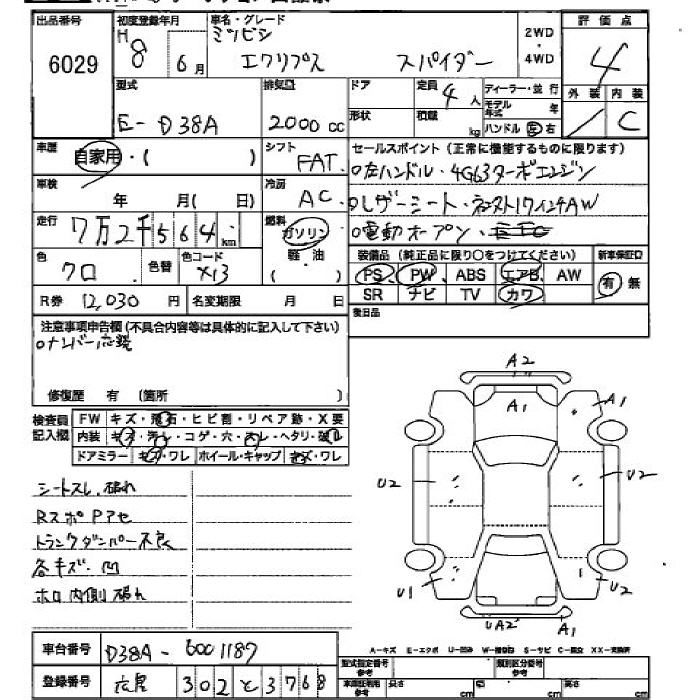 出品番号
6029
初度登録年月
H 8 6月
車名・グレード
ミツビシ
エクリプス スパイダー
2WD
・
4WD
評価点
4
外装 内装
C
型式
E-D38A
排気量
2000 cc
ドア
形状
定員
4人
積載
kg
ディーラー・並行
モデル年式 年
ハンドル 左 右
車歴
自家用・( )
シフト
FAT
セールスポイント(正常に機能するものに限ります)
○左ハンドル・4G63ターボエンジン
○レザーシート・
17インチAW
○電動オープン・
車検
年 月( 日)
冷房
AC
走行
7万2千564km
燃料
ガソリン
軽・油
( )
色
クロ
色替
色コード
X13
装備品(純正品に限り○をつけてください)
PS PW ABS エアB AW
SR ナビ TV カワ
新車保証書
有 無
R券 12,030円
名変期限 月 日
後日品
注意事項申告欄(不具合内容等は具体的に記入して下さい)
○ナンバー灯
修復歴 有 (箇所 )
検査員
記入欄
FW キズ・飛石・ヒビ割・リペア跡・X要
内装 キズ・汚レ・コゲ・穴・スレ・ヘタリ・破レ
ドアミラー キズ・ワレ ホイール・キャップ キズ・ワレ
シートスレ.破れ
RスポPアセ
トランクダンパー不良
各キズ・凹
ホロ内側破れ
A2
A1
A1
U2
U2
U1
U2
UA2
A1
車台番号
D38A-6001187
登録番号
302 と 3768
A-キズ E-エクボ U-凹み W-補修跡 S-サビ C-腐食 XX-交換済
型式指定番号
参考
類別区分番号
参考
長さ cm
幅 cm
高さ cm